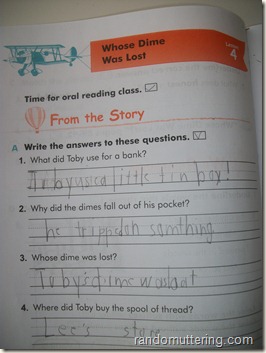 Whose Dime
Was Lost
Lesson
4
Time for oral reading class.
From the Story
A Write the answers to these questions.
1. What did Toby use for a bank?
Toby used a little tin box!
2. Why did the dimes fall out of his pocket?
he trippedon somthing
3. Whose dime was lost?
Toby's dime was lost
4. Where did Toby buy the spool of thread?
Lee's store
randommuttering.com